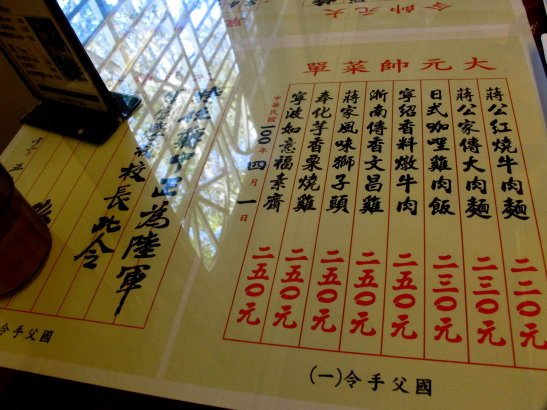 大元帥菜單
蔣公紅燒牛肉麵 二二〇元
蔣公家傳大肉麵 二三〇元
日式咖哩雞肉飯 二三〇元
寧紹香料燉牛肉 二五〇元
浙南傳香文昌雞 二五〇元
蔣家風味獅子頭 二五〇元
奉化芋香栗燒雞 二五〇元
寧波如意福素齋 二五〇元
中華民國一〇〇年四月一日
國父手令(一)
大元帥令
中正為陸軍
校長此令
國父手令